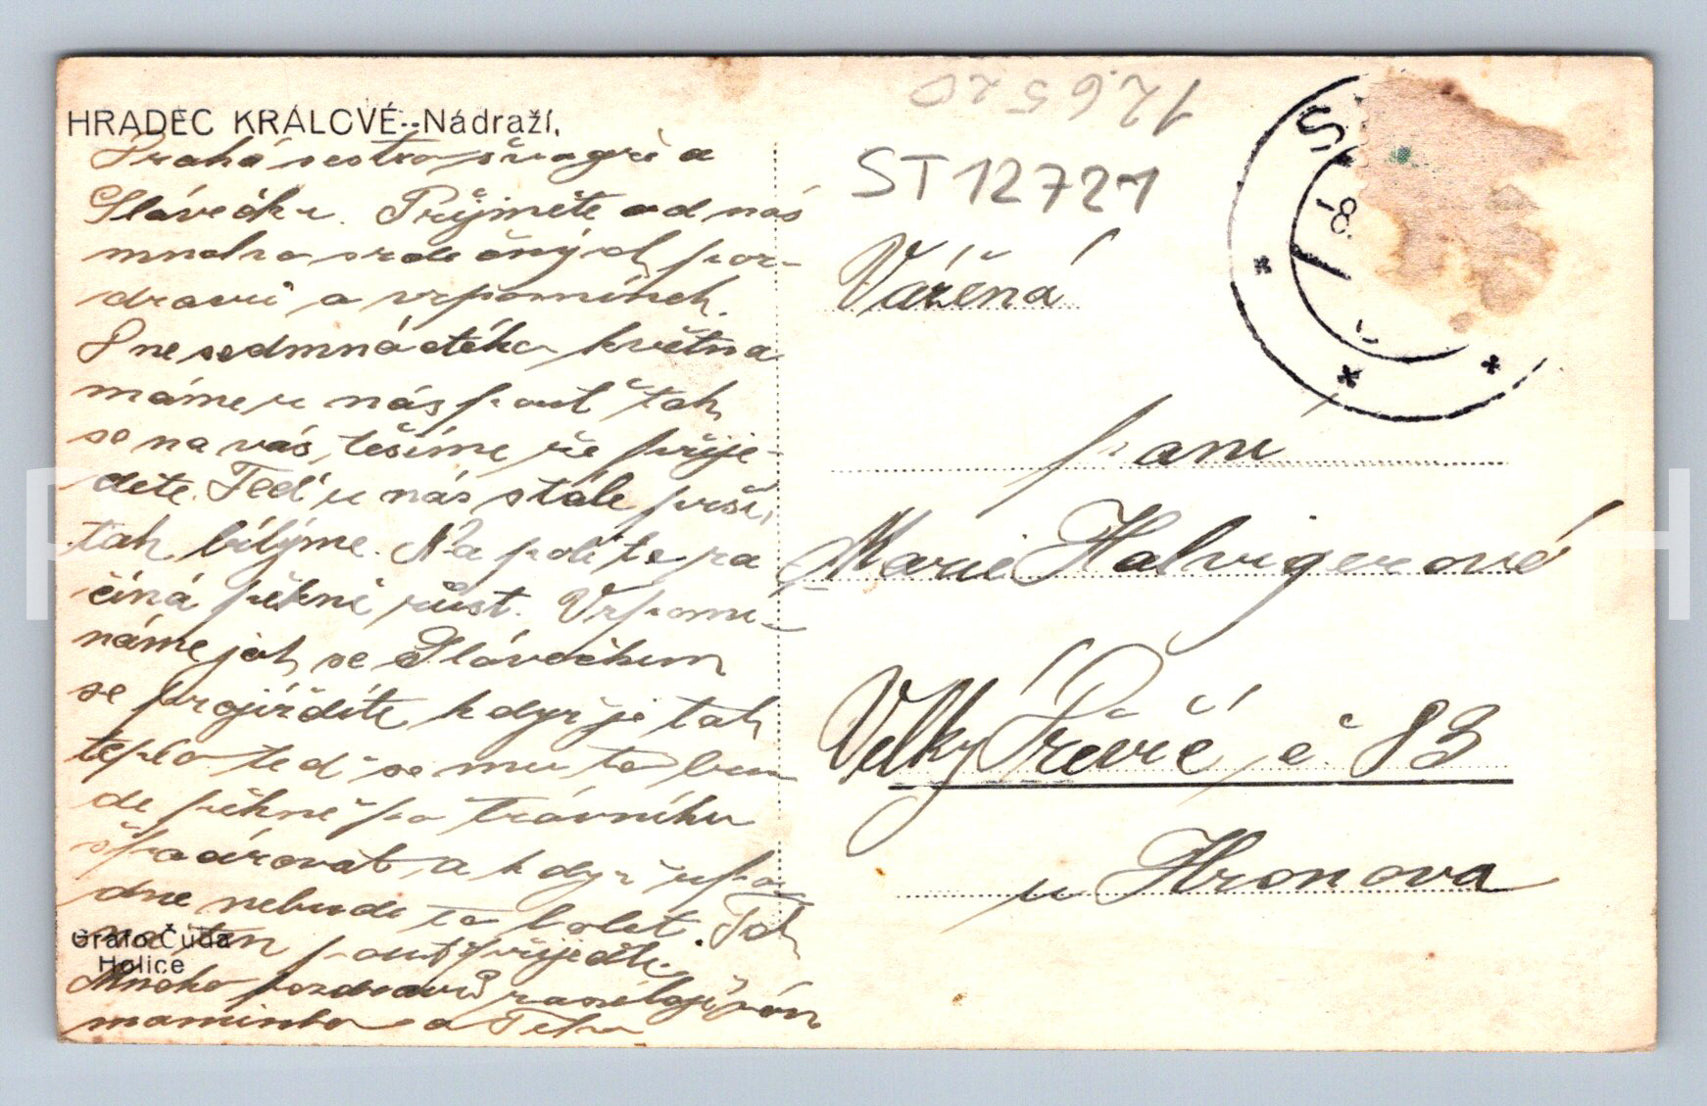 HRADEC KRÁLOVÉ--Nádraží.
Drahá sestro švagře a
Slávečku. Přijměte od nás
mnoho srdečných poz-
dravů a vzpomínek.
Dne sedmnáctého května
máme u nás pouť tak
se na vás těšíme že přije-
dete. Teď u nás stále prší,
tak bílýme. Na poli to za
číná pěkně růst. Vzpomí-
náme jak se Slávečkem
se projíždíte když je tak
teplo teď se mu to bu
de pěkně po trávníku
špacírovat, a když upa
dne nebude to bolet. Tak
na ten pouť přijeďte.
Mnoho pozdravů zasílají vám
maminka a
Grafo Čuda
Holice
126520
ST12721
S
8.
Vážená
paní
Marie
Velký Dřevíč č. 83
u Hronova
P H